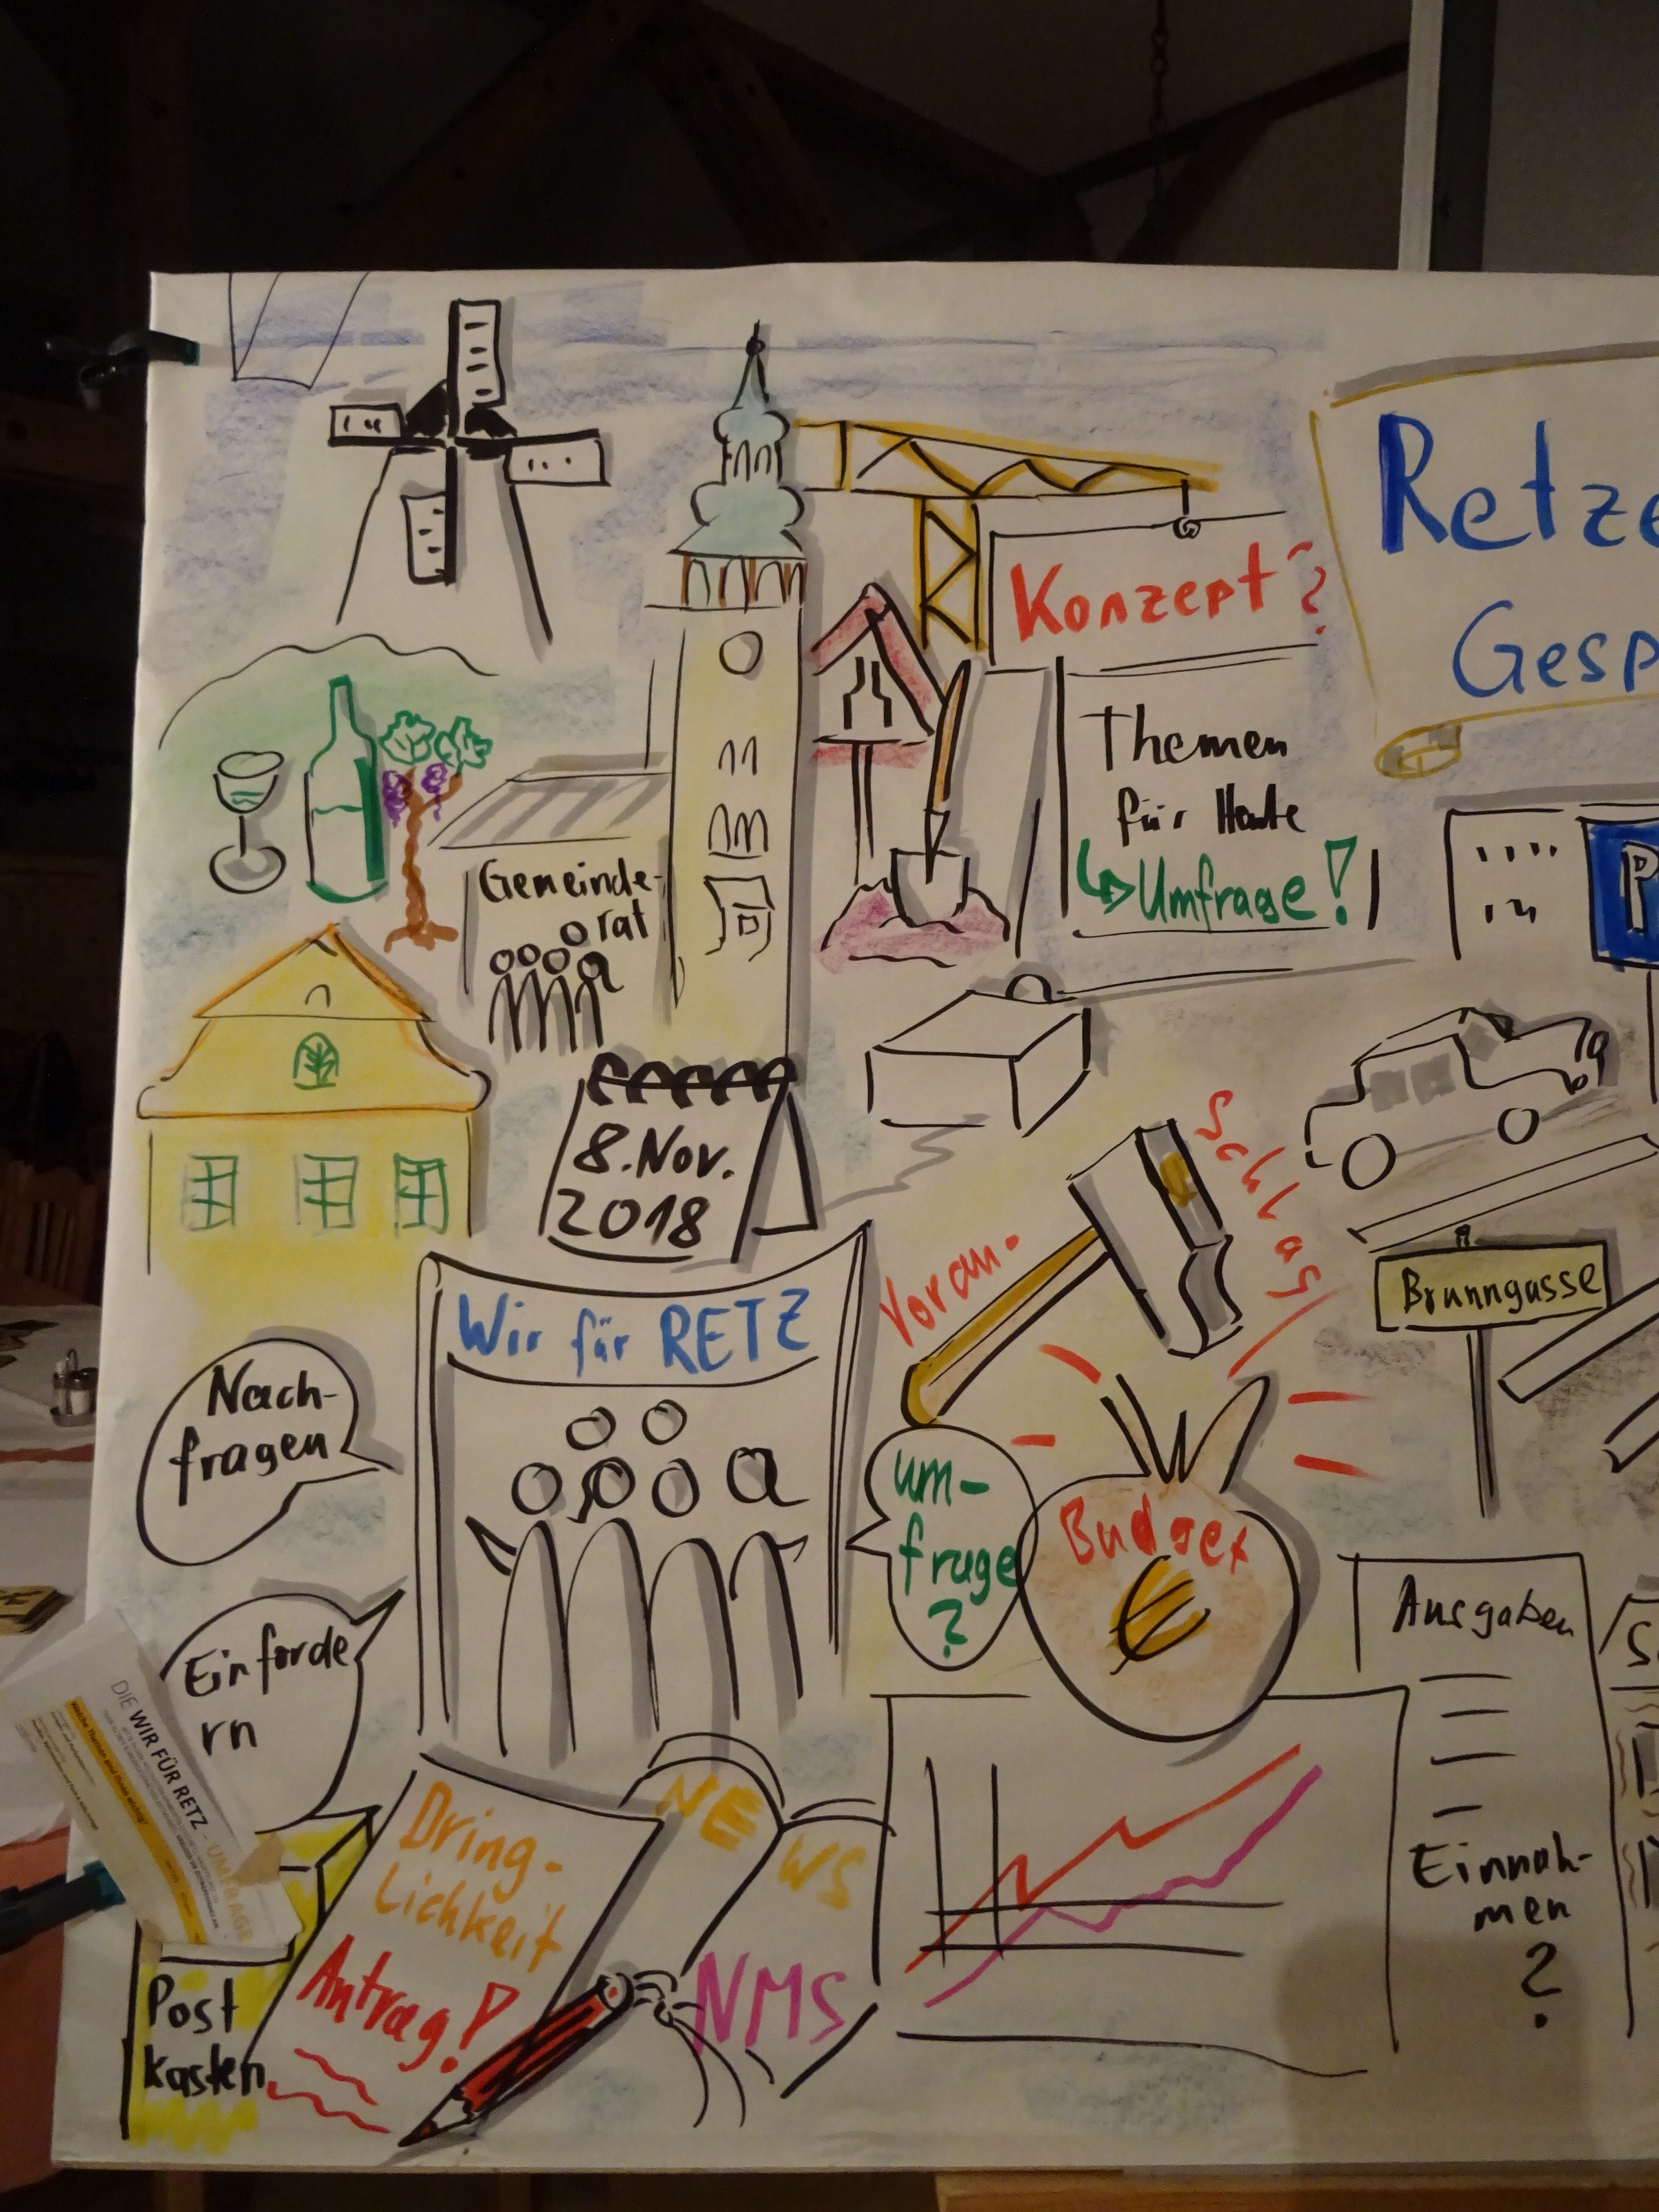 Retze
Gesp
Konzept?
Themen
für Heute
Umfrage!
P
Gemeinde-
rat
8. Nov.
2018
Voran-
schlag
Brunngasse
Wir für RETZ
Nach-
fragen
um-
frage
?
Budget
€
Ausgaben
Einnah-
men
?
S
Einforde
rn
DIE WIR FÜR RETZ - UMFRAGE
Welche Themen sind Ihnen wichtig?
Dring-
lichkeit
Antrag!
NE
WS
NMS
Post
kasten